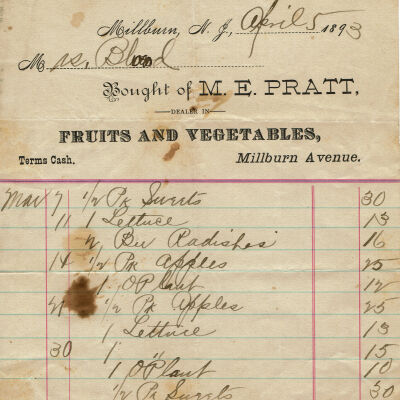 Millburn, N. J., April 5 1893
Mrs. Blood
Bought of M. E. PRATT,
DEALER IN
FRUITS AND VEGETABLES,
Terms Cash. Millburn Avenue.
Mar 7 1/2 Pk Sweets 30
11 1 Lettuce 13
2 Bu Radishes 16
14 1/2 Pk Apples 25
1 O Plant 12
21 1/2 Pk Apples 25
1 Lettuce 13
30 1 " 15
1 O Plant 10
1/2 Pk Sweets 30